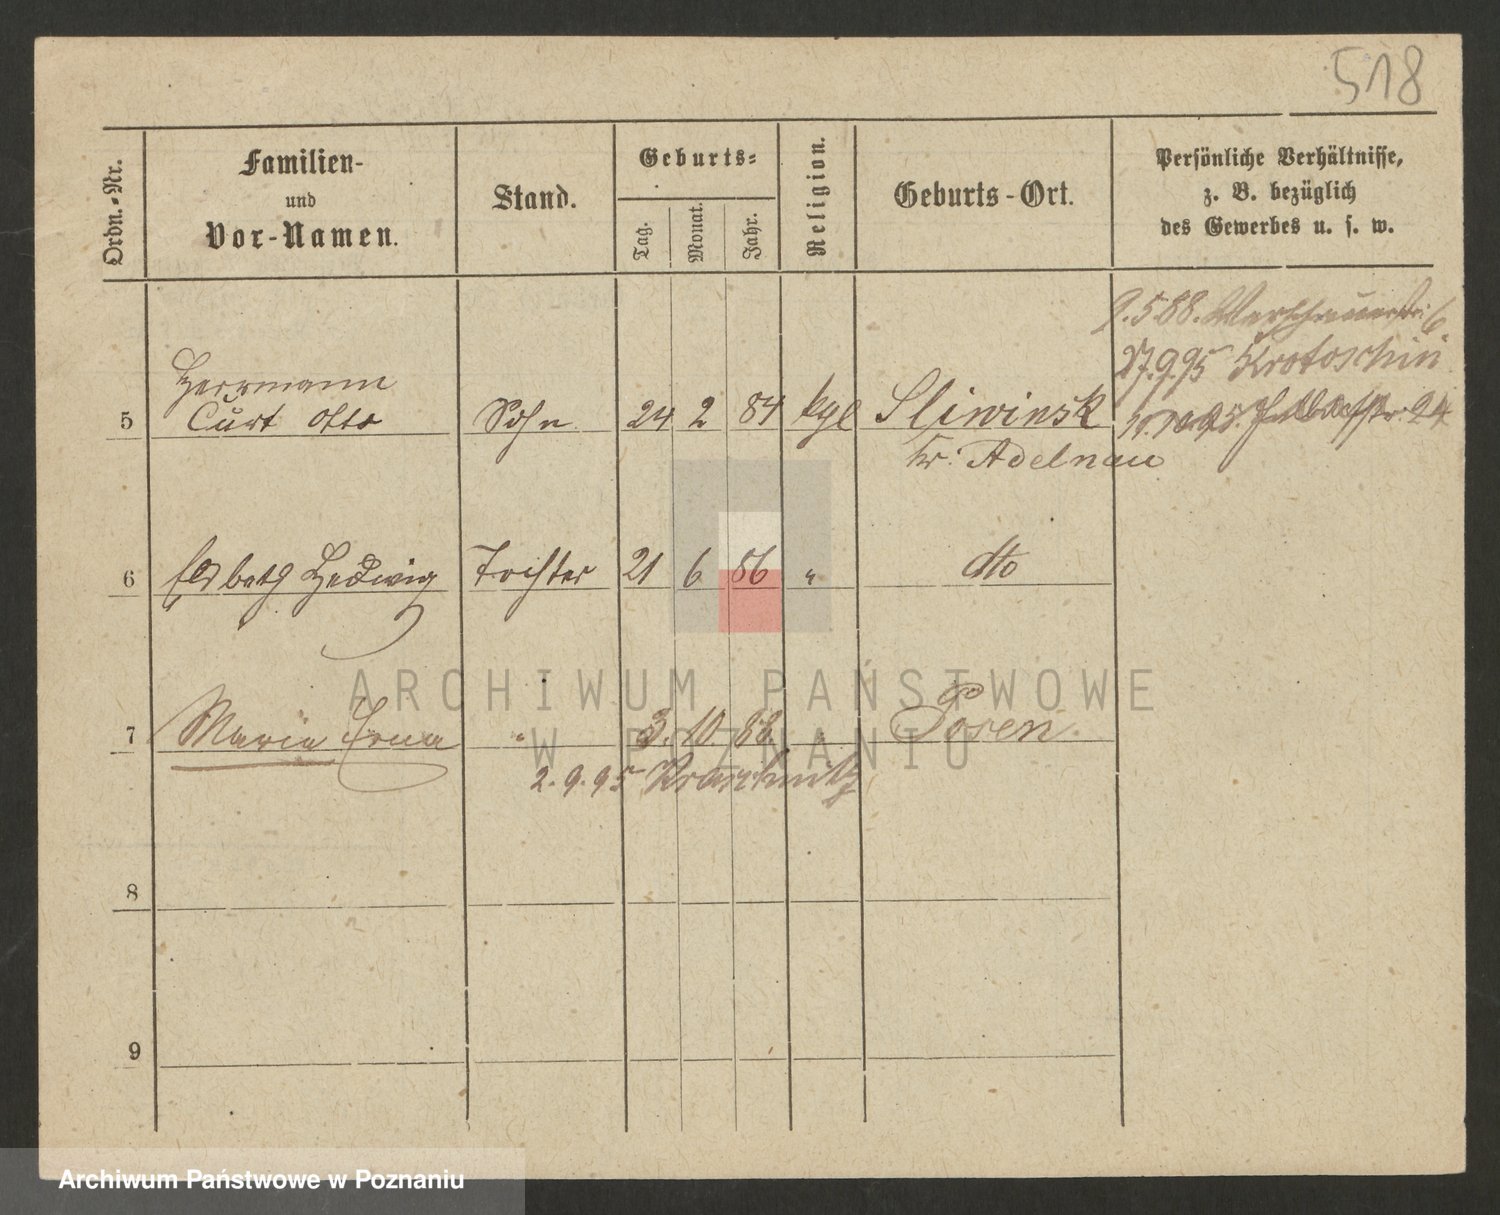 518
Ordn.-Nr.
Familien-
und
Vor-Namen.
Stand.
Geburts-
Tag.
Monat.
Jahr.
Religion.
Geburts-Ort.
Persönliche Verhältnisse,
z. B. bezüglich
des Gewerbes u. s. w.
9.5 88. 6
27.9.95 Krotoschin
Herrmann
5 Curt Otto Sohn 24 2 84 kgl Sliwinsk
Kr. Adelnau
6 Elsbeth Hedwig Tochter 21 6 86 " dto
7 Maria Erna " 3. 10. 88. " Posen.
2.9.95
8
9
ARCHIWUM PAŃSTWOWE
W POZNANIU
Archiwum Państwowe w Poznaniu